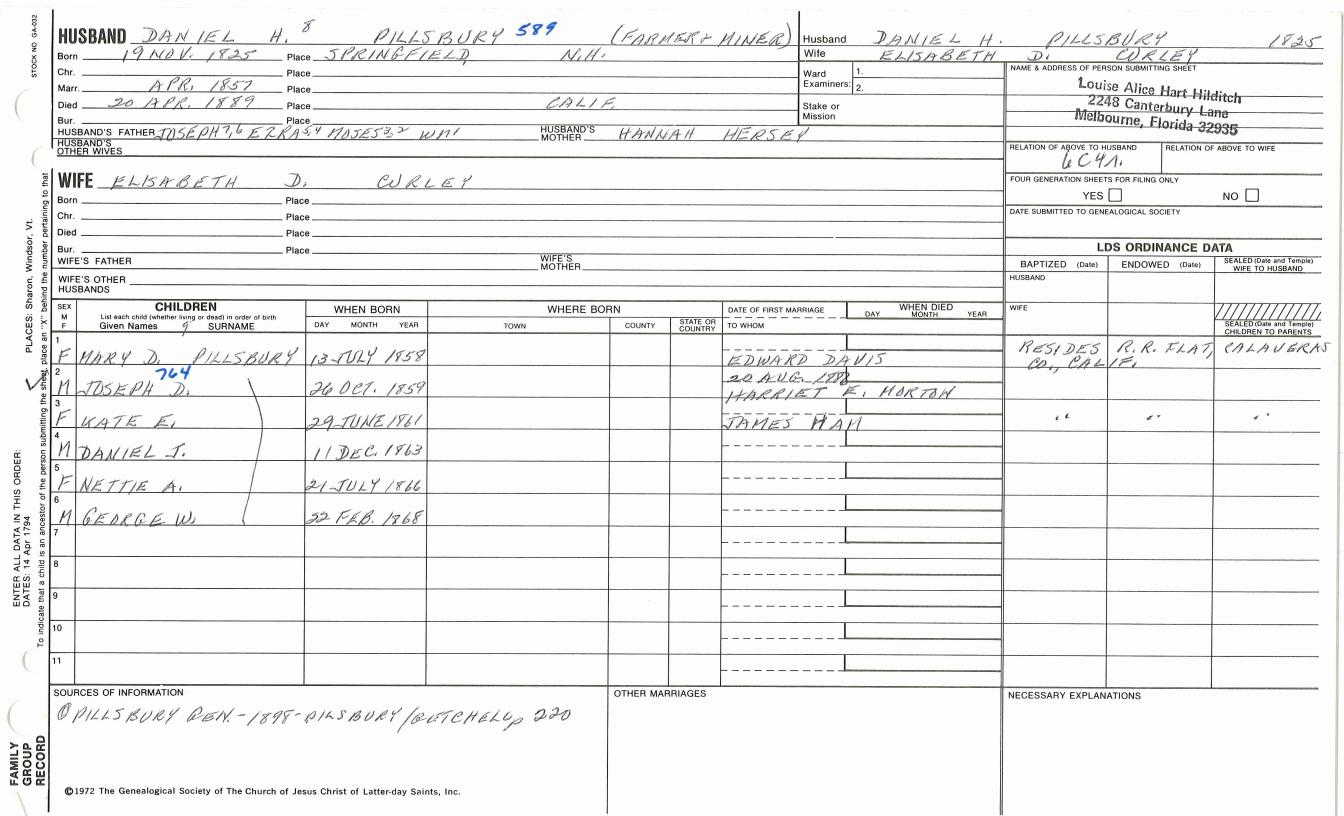 STOCK NO. GA-032
HUSBAND DANIEL H. 8 PILLSBURY 589 (FARMER + MINER)
Born 19 NOV. 1825 Place SPRINGFIELD, N.H.
Chr. Place
Marr. APR. 1857 Place
Died 20 APR. 1889 Place CALIF.
Bur. Place
HUSBAND'S FATHER JOSEPH 7,6 EZRA 5,4 MOSES 3,2 WM 1 HUSBAND'S MOTHER HANNAH HERSEY
HUSBAND'S OTHER WIVES
Husband DANIEL H. PILLSBURY 1825
Wife ELISABETH D. CURLEY
Ward Examiners: 1.
2.
Stake or Mission
NAME & ADDRESS OF PERSON SUBMITTING SHEET
Louise Alice Hart Hilditch
2248 Canterbury Lane
Melbourne, Florida 32935
RELATION OF ABOVE TO HUSBAND RELATION OF ABOVE TO WIFE
6C4r.
FOUR GENERATION SHEETS FOR FILING ONLY
YES NO
DATE SUBMITTED TO GENEALOGICAL SOCIETY
WIFE ELISABETH D. CURLEY
Born Place
Chr. Place
Died Place
Bur. Place
WIFE'S FATHER WIFE'S MOTHER
WIFE'S OTHER HUSBANDS
LDS ORDINANCE DATA
BAPTIZED (Date) ENDOWED (Date) SEALED (Date and Temple) WIFE TO HUSBAND
HUSBAND
WIFE
SEALED (Date and Temple) CHILDREN TO PARENTS
SEX M F
CHILDREN
List each child (whether living or dead) in order of birth
Given Names 9 SURNAME
WHEN BORN
DAY MONTH YEAR
WHERE BORN
TOWN COUNTY STATE OR COUNTRY
DATE OF FIRST MARRIAGE
TO WHOM
WHEN DIED
DAY MONTH YEAR
1 F MARY D. PILLSBURY 13 JULY 1858 EDWARD DAVIS RESIDES R.R. FLAT, CALAVERAS CO., CALIF.
764
2 M JOSEPH D. 26 OCT. 1859 20 AUG. 1888 HARRIET E. MORTON
3 F KATE E. 29 JUNE 1861 JAMES HAM " " "
4 M DANIEL J. 11 DEC. 1863
5 F NETTIE A. 21 JULY 1866
6 M GEORGE W. 22 FEB. 1868
7
8
9
10
11
SOURCES OF INFORMATION
① PILLSBURY GEN. - 1898 - PILSBURY/GETCHELL p 220
OTHER MARRIAGES
NECESSARY EXPLANATIONS
©1972 The Genealogical Society of The Church of Jesus Christ of Latter-day Saints, Inc.
ENTER ALL DATA IN THIS ORDER:
DATES: 14 Apr 1794
PLACES: Sharon, Windsor, Vt.
To indicate that a child is an ancestor of the person submitting the sheet, place an "X" behind the number pertaining to that
FAMILY GROUP RECORD